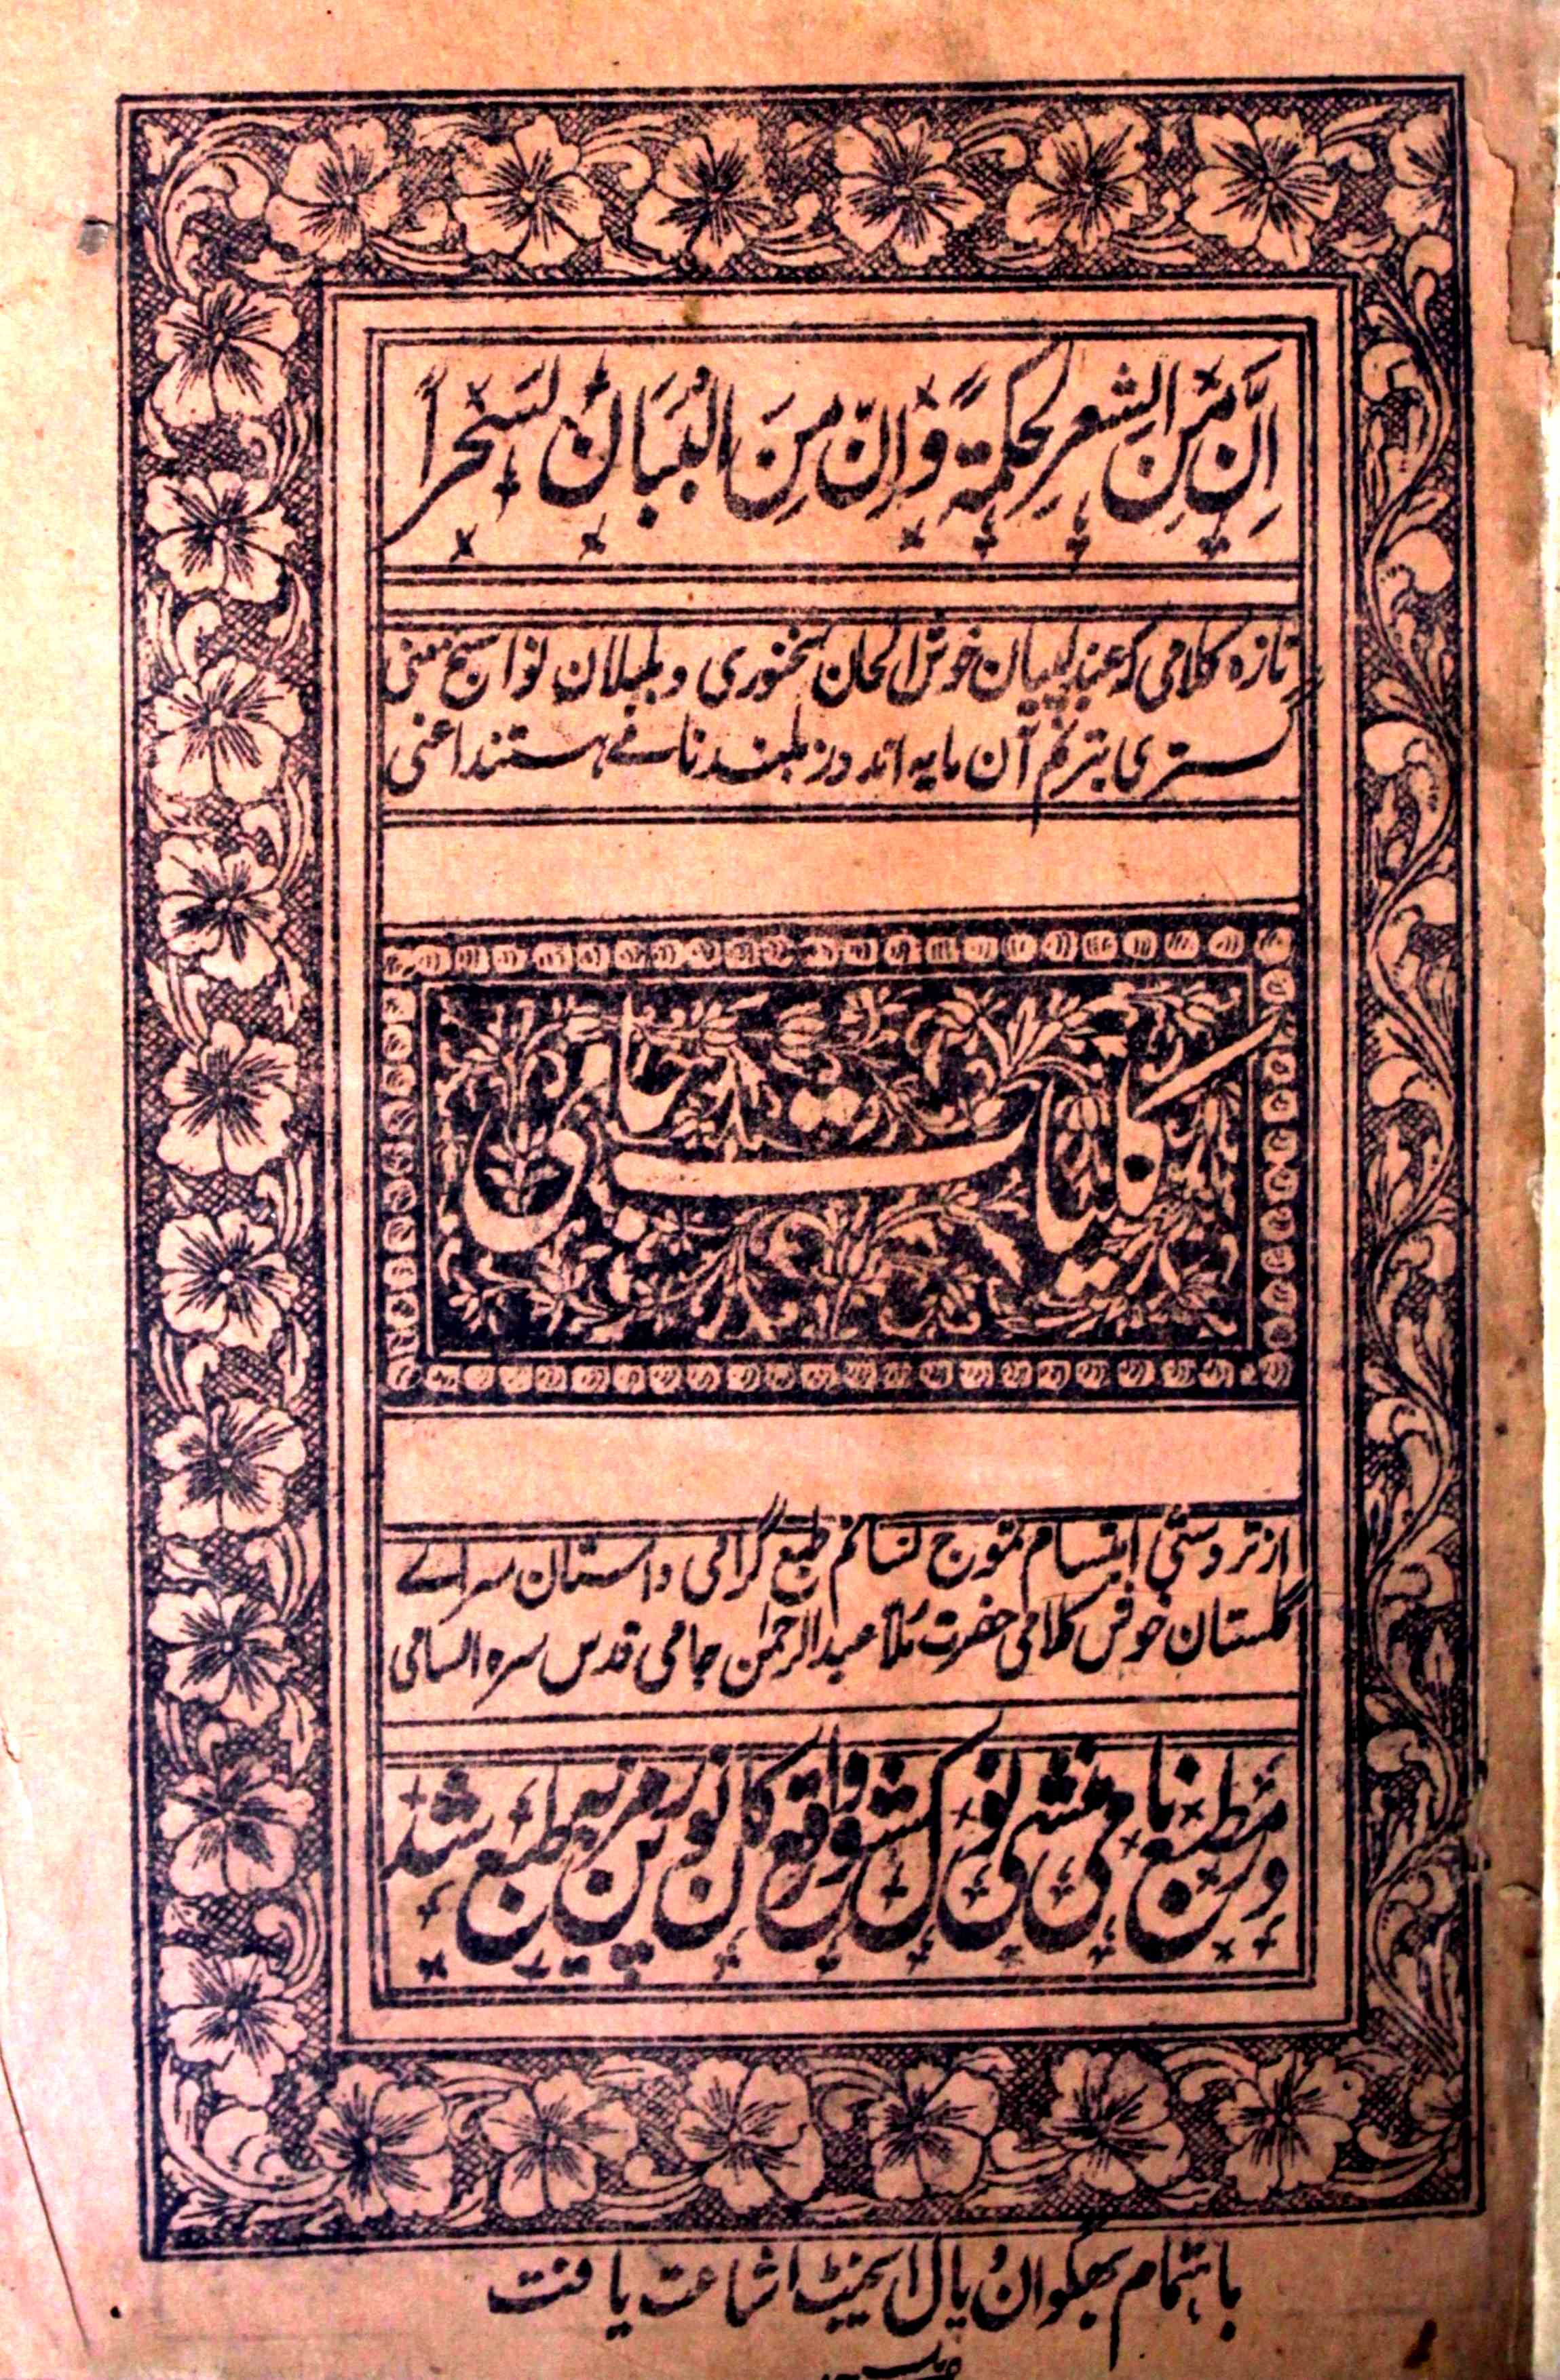 اِنَّ مِنَ الشعرِ لحکمةً وَّاِنّ مِنَ البُیَانِ لَسَحْراً
تازه کلامی که عندلیبان خوش الحان سخنوری و بلبلان نوا سنج معنی
گستری بترنم آن مایه اندوز بلند نامے هستند اعنی
کلیات جامی
از تردستی ابتسام تموج نسائم طبع گرامی داستان سراے
گلستان خوش کلامی حضرت مُلّا عبدالرحمٰن جامی قدس سره السامی
در مطبع نامی منشی نولکشور واقع کانپور مزین طبع شد
باهتمام بھگوان دیال ایجنٹ اشاعت یافت